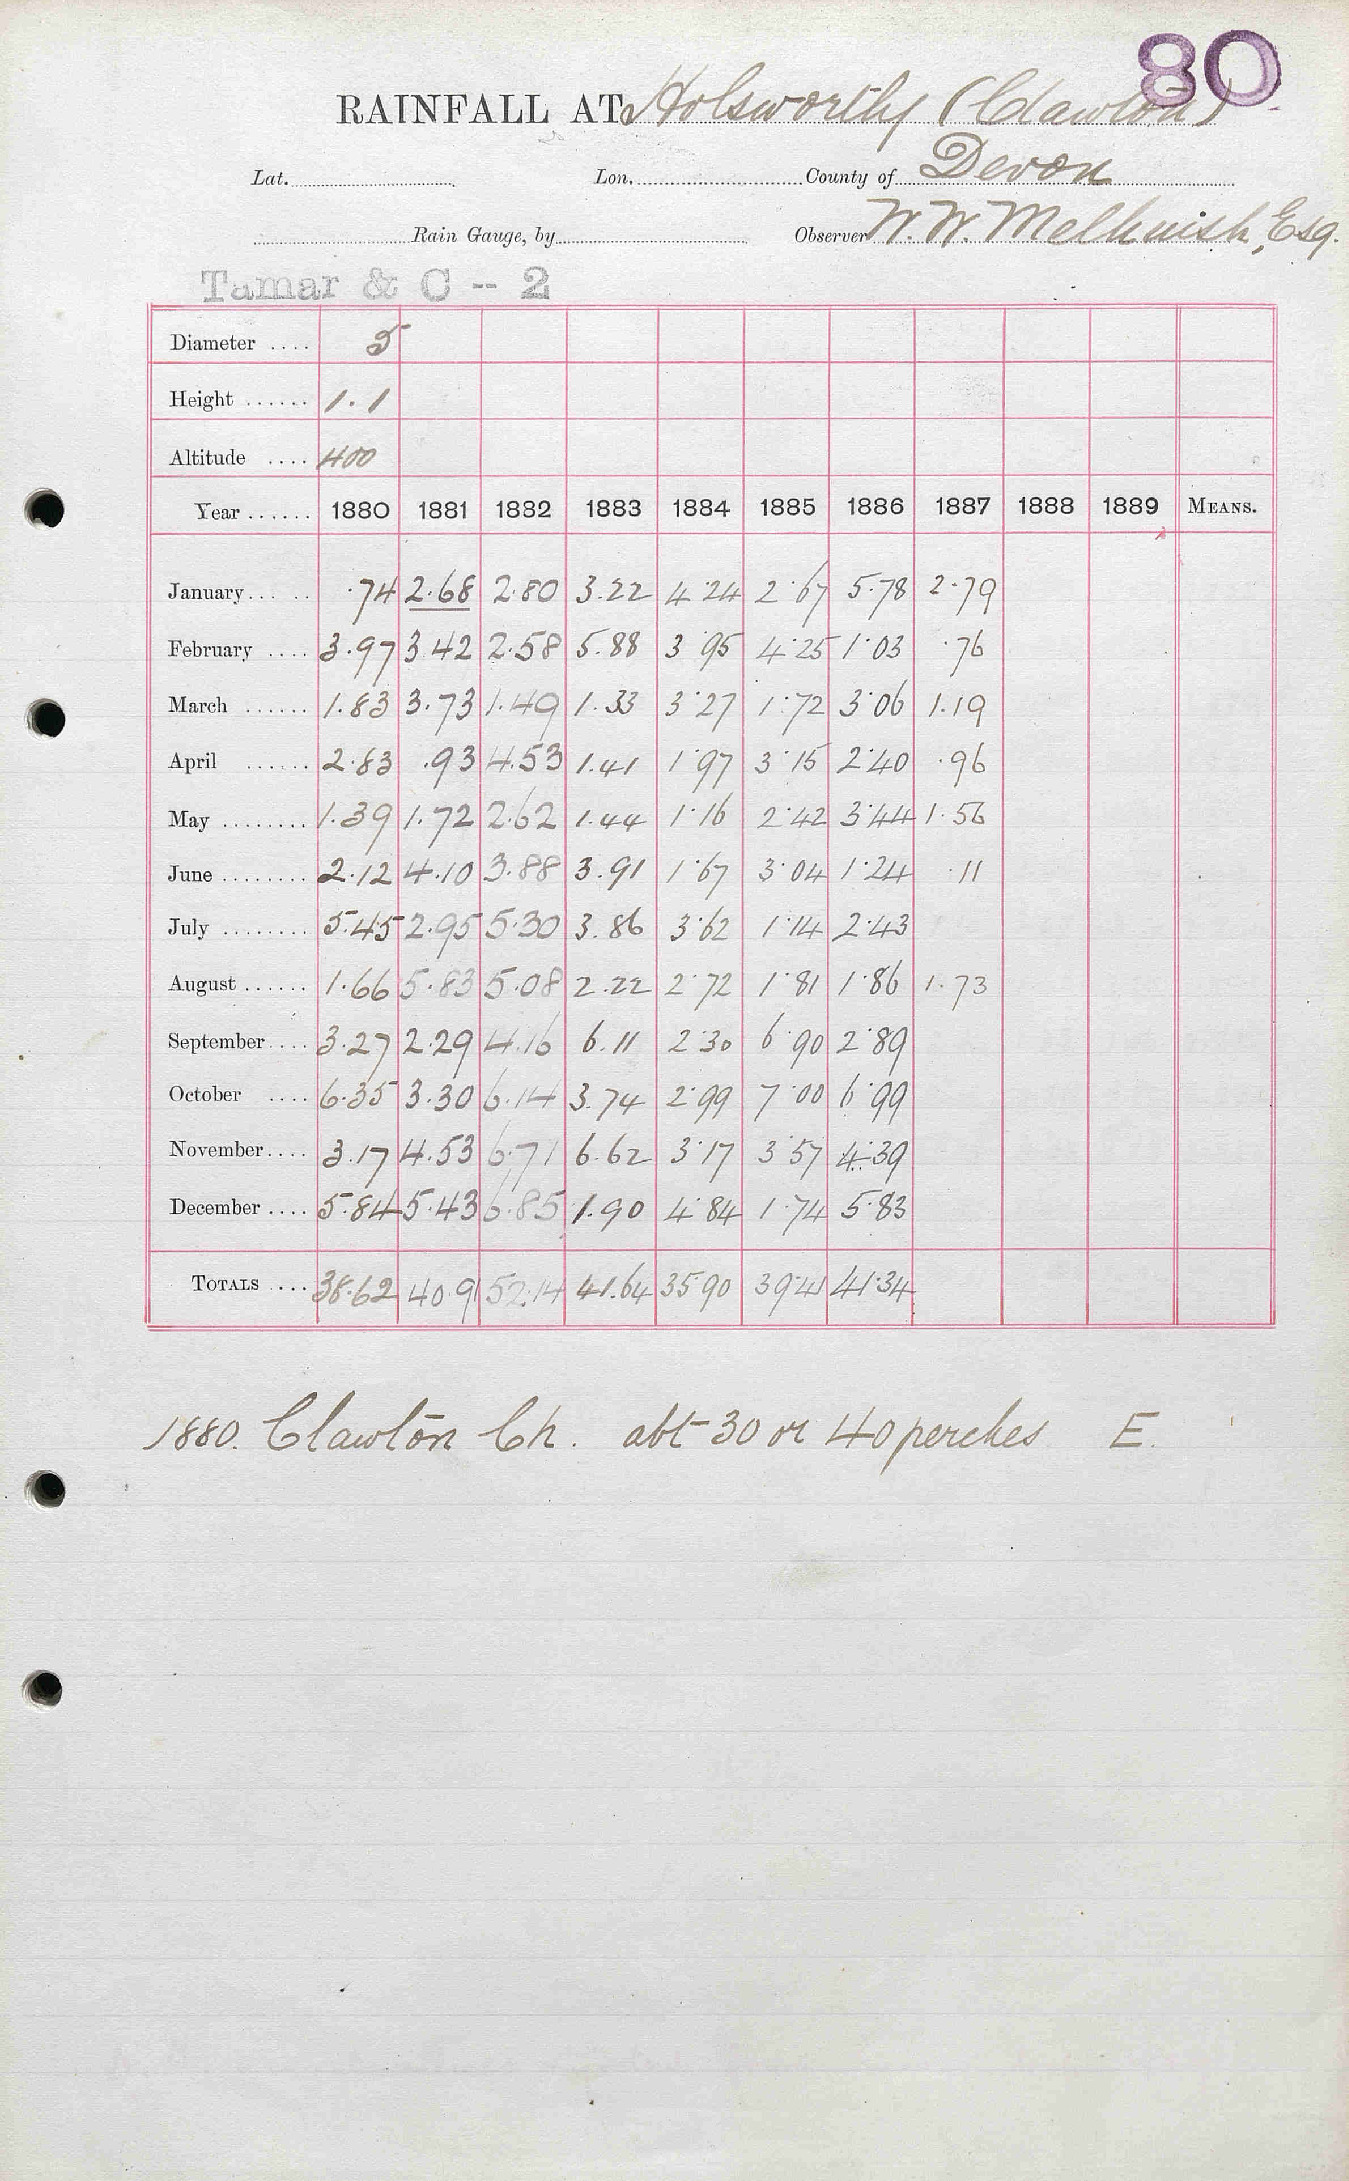 80
RAINFALL AT Holsworthy (Clawton)
Lat. Lon. County of Devon
Rain Gauge, by Observer W. W. Melhuish, Esq.
Tamar & C -- 2
Diameter .... 5
Height ...... 1.1
Altitude .... 400
Year ...... 1880 1881 1882 1883 1884 1885 1886 1887 1888 1889 MEANS.
January ...... .74 2.68 2.80 3.22 4.24 2.67 5.78 2.79
February .... 3.97 3.42 2.58 5.88 3.95 4.25 1.03 .76
March ...... 1.83 3.73 1.49 1.33 3.27 1.72 3.06 1.19
April ...... 2.83 .93 4.53 1.41 1.97 3.15 2.40 .96
May ........ 1.39 1.72 2.62 1.44 1.16 2.42 3.44 1.56
June ........ 2.12 4.10 3.88 3.91 1.67 3.04 1.24 .11
July ........ 5.45 2.95 5.30 3.86 3.62 1.14 2.43
August ...... 1.66 5.83 5.08 2.22 2.72 1.81 1.86 1.73
September .... 3.27 2.29 4.16 6.11 2.30 6.90 2.89
October .... 6.35 3.30 6.14 3.74 2.99 7.00 6.99
November .... 3.17 4.53 6.71 6.62 3.17 3.57 4.39
December .... 5.84 5.43 6.85 1.90 4.84 1.74 5.83
TOTALS .... 38.62 40.91 52.14 41.64 35.90 39.41 41.34
1880. Clawton Ch. abt 30 or 40 perches E.